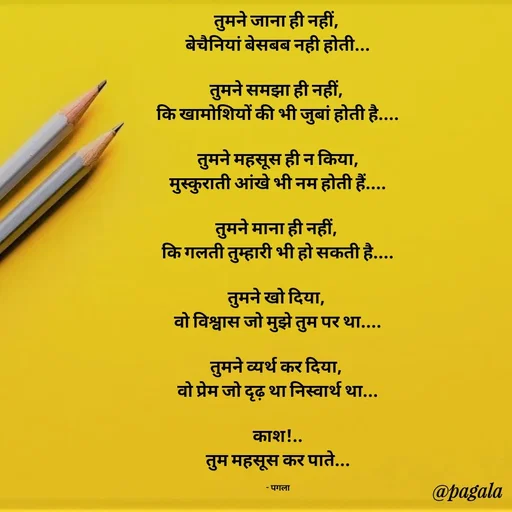 तुमने जाना ही नहीं,
बेचैनियां बेसबब नही होती...
तुमने समझा ही नहीं,
कि खामोशियों की भी जुबां होती है....
तुमने महसूस ही न किया,
मुस्कुराती आंखे भी नम होती हैं....
तुमने माना ही नहीं,
कि गलती तुम्हारी भी हो सकती है....
तुमने खो दिया,
वो विश्वास जो मुझे तुम पर था....
तुमने व्यर्थ कर दिया,
वो प्रेम जो दृढ़ था निस्वार्थ था...
काश!..
तुम महसूस कर पाते...
- पगला
@pagala